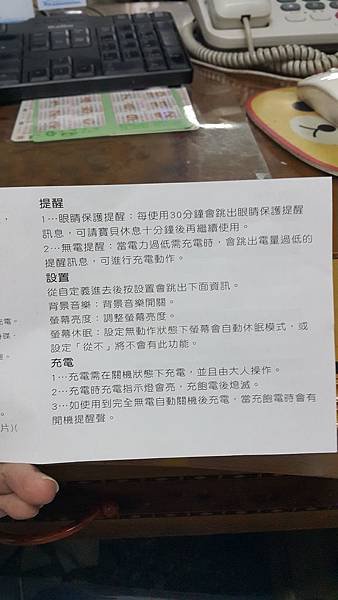 提醒
1…眼睛保護提醒：每使用30分鐘會跳出眼睛保護提醒
訊息，可請寶貝休息十分鐘後再繼續使用。
2…無電提醒：當電力過低需充電時，會跳出電量過低的
提醒訊息，可進行充電動作。
設置
從自定義進去後按設置會跳出下面資訊。
背景音樂：背景音樂開關。
螢幕亮度：調整螢幕亮度。
螢幕休眠：設定無動作狀態下螢幕會自動休眠模式，或
設定「從不」將不會有此功能。
充電
1…充電需在關機狀態下充電，並且由大人操作。
2…充電時充電指示燈會亮，充飽電後熄滅。
3…如使用到完全無電自動關機後充電，當充飽電時會有
開機提醒聲。
充電。
片)(